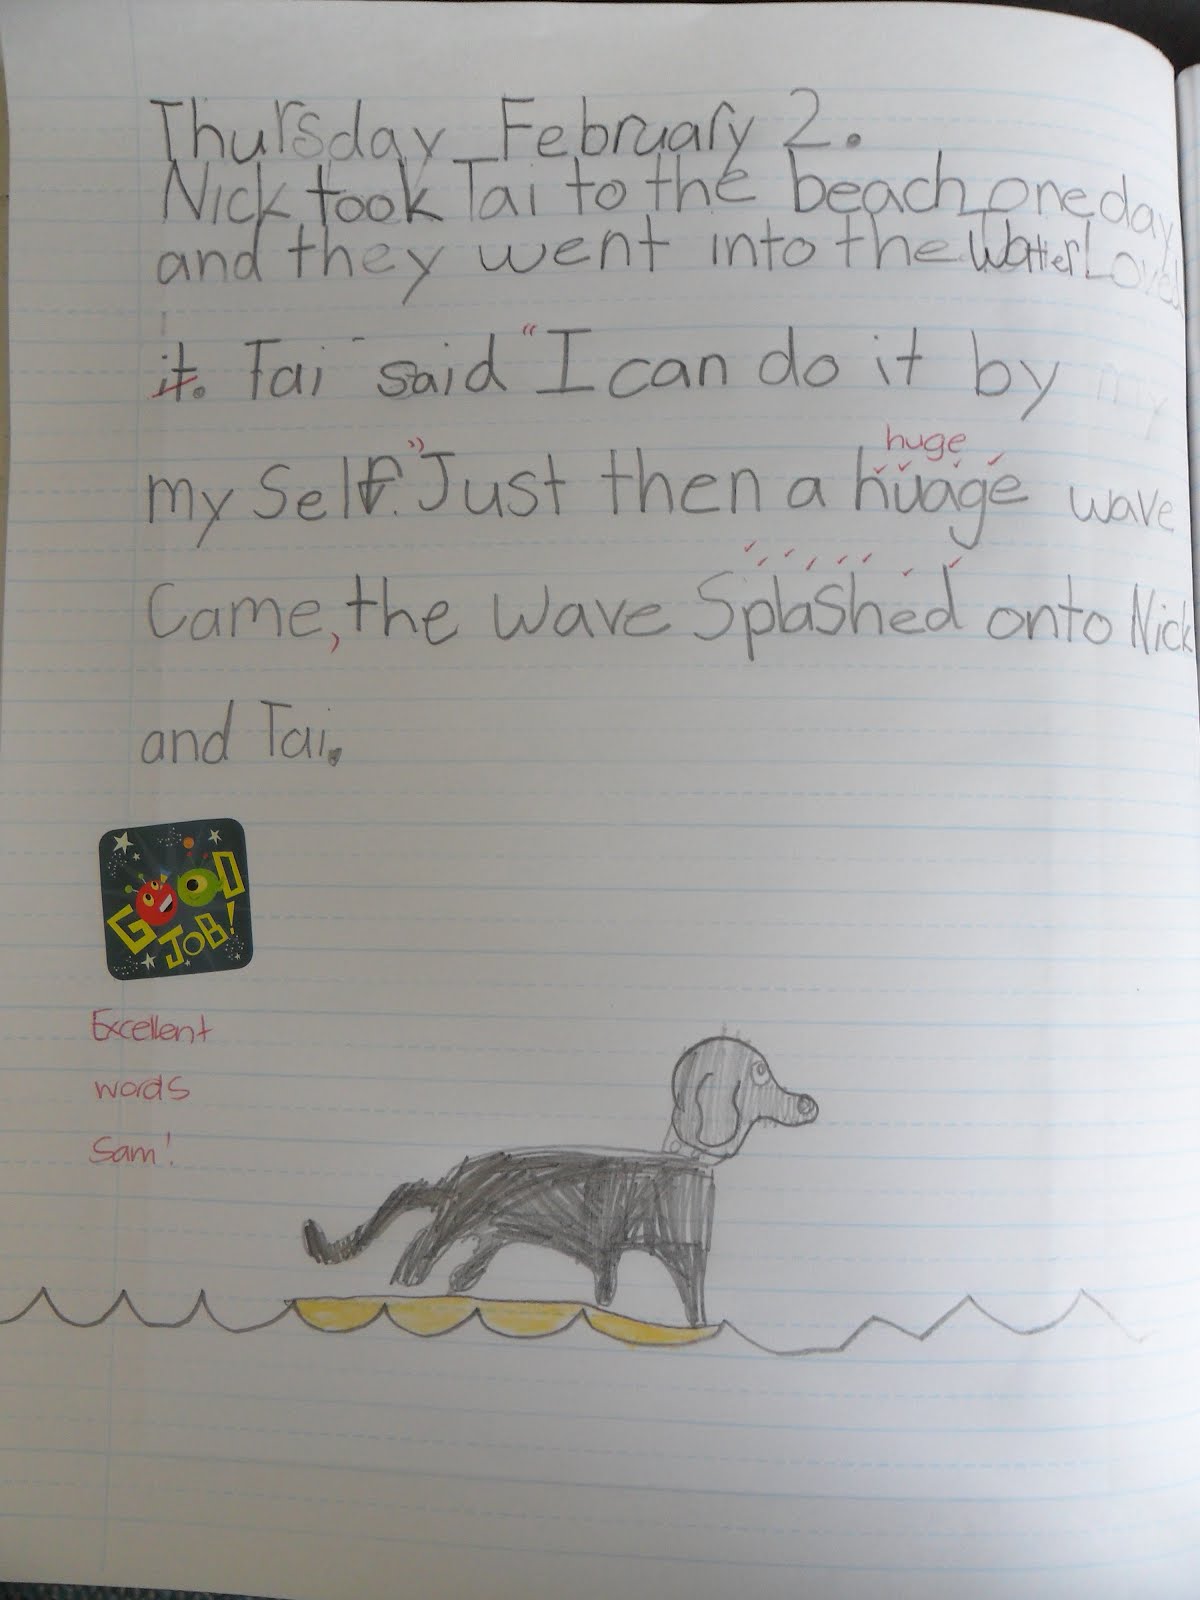 Thursday February 2.
Nick took Tai to the beach one day
and they went into the Watter Loved
it. Tai said "I can do it by my
my Self." Just then a huage wave
huge
Came, the wave Splashed onto Nick
and Tai.
GOOD
JOB!
Excellent
words
Sam!